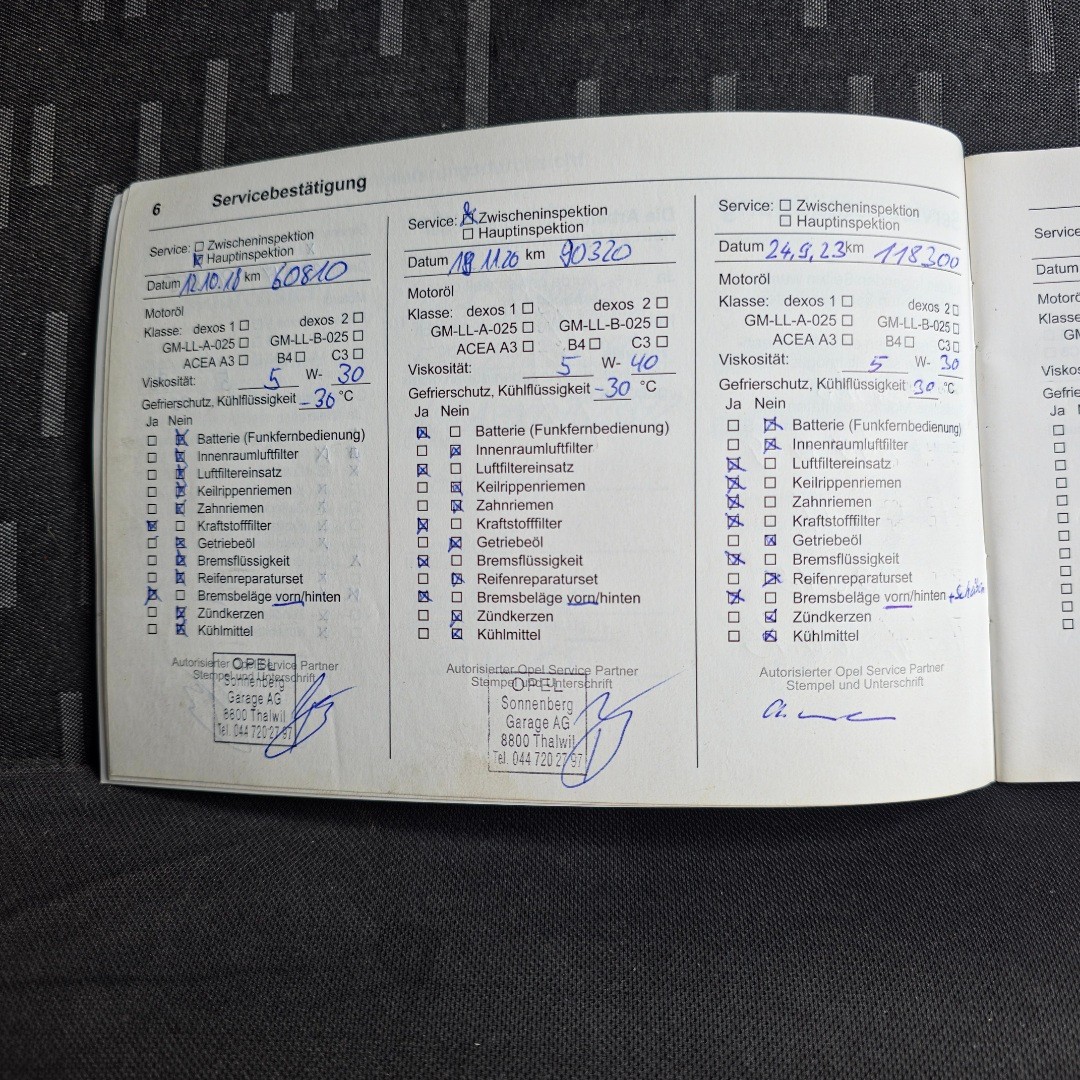 6 Servicebestätigung
Service: ☐ Zwischeninspektion
☒ Hauptinspektion
Datum 12.10.18 km 60810
Motoröl
Klasse: dexos 1 ☐ dexos 2 ☐
GM-LL-A-025 ☐ GM-LL-B-025 ☐
ACEA A3 ☐ B4 ☐ C3 ☐
Viskosität: 5 W- 30
Gefrierschutz, Kühlflüssigkeit -30 °C
Ja Nein
☐ ☒ Batterie (Funkfernbedienung)
☐ ☒ Innenraumluftfilter
☐ ☒ Luftfiltereinsatz
☐ ☒ Keilrippenriemen
☐ ☒ Zahnriemen
☒ ☐ Kraftstofffilter
☐ ☒ Getriebeöl
☐ ☒ Bremsflüssigkeit
☐ ☒ Reifenreparaturset
☒ ☐ Bremsbeläge vorn/hinten
☐ ☒ Zündkerzen
☐ ☒ Kühlmittel
Autorisierter Opel Service Partner
Stempel und Unterschrift
OPEL
Sonnenberg
Garage AG
8800 Thalwil
Tel. 044 720 27 97
Service: ☒ Zwischeninspektion
☐ Hauptinspektion
Datum 19 11.20 km 90320
Motoröl
Klasse: dexos 1 ☐ dexos 2 ☐
GM-LL-A-025 ☐ GM-LL-B-025 ☐
ACEA A3 ☐ B4 ☐ C3 ☐
Viskosität: 5 W- 40
Gefrierschutz, Kühlflüssigkeit -30 °C
Ja Nein
☒ ☐ Batterie (Funkfernbedienung)
☐ ☒ Innenraumluftfilter
☒ ☐ Luftfiltereinsatz
☐ ☒ Keilrippenriemen
☐ ☒ Zahnriemen
☒ ☐ Kraftstofffilter
☐ ☒ Getriebeöl
☒ ☐ Bremsflüssigkeit
☐ ☒ Reifenreparaturset
☒ ☐ Bremsbeläge vorn/hinten
☐ ☒ Zündkerzen
☐ ☒ Kühlmittel
Autorisierter Opel Service Partner
Stempel und Unterschrift
OPEL
Sonnenberg
Garage AG
8800 Thalwil
Tel. 044 720 27 97
Service: ☐ Zwischeninspektion
☐ Hauptinspektion
Datum 24,9,23 km 118300
Motoröl
Klasse: dexos 1 ☐ dexos 2 ☐
GM-LL-A-025 ☐ GM-LL-B-025 ☐
ACEA A3 ☐ B4 ☐ C3 ☐
Viskosität: 5 W- 30
Gefrierschutz, Kühlflüssigkeit 30 °C
Ja Nein
☐ ☒ Batterie (Funkfernbedienung)
☐ ☒ Innenraumluftfilter
☒ ☐ Luftfiltereinsatz
☒ ☐ Keilrippenriemen
☒ ☐ Zahnriemen
☒ ☐ Kraftstofffilter
☐ ☒ Getriebeöl
☒ ☐ Bremsflüssigkeit
☐ ☒ Reifenreparaturset
☒ ☐ Bremsbeläge vorn/hinten
☐ ☒ Zündkerzen
☐ ☒ Kühlmittel
Autorisierter Opel Service Partner
Stempel und Unterschrift
Service
Datum
Motorö
Klasse
GM
Viskos
Gefrie
Ja